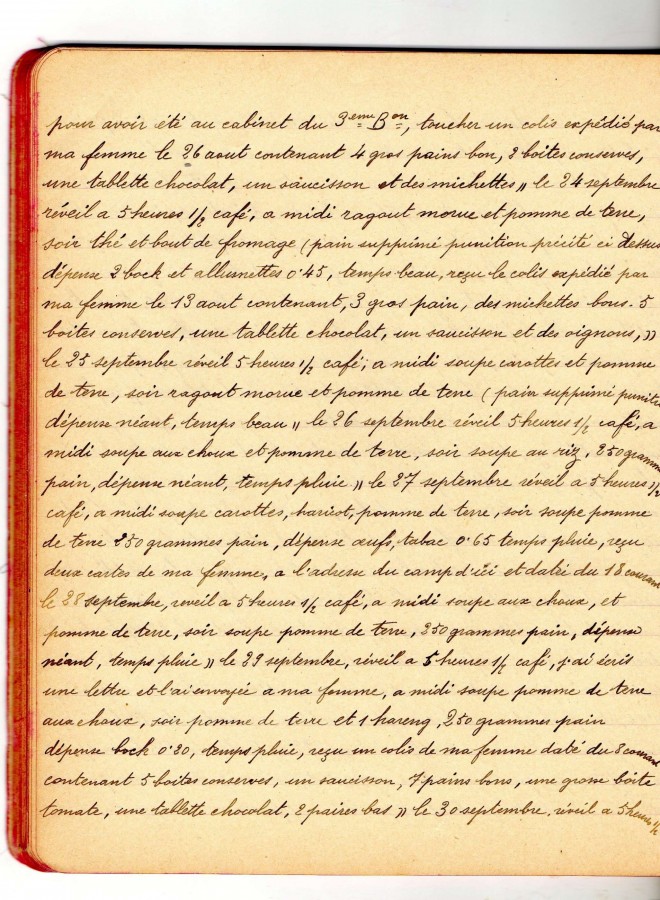 pour avoir été au cabinet du 3eme Bon, toucher un colis expédié par
ma femme le 26 aout contenant 4 gros pains bon, 2 boites conserves,
une tablette chocolat, un saucisson et des michettes ,, le 24 septembre
réveil a 5 heures 1/2 café, a midi ragout morue et pomme de terre,
soir thé et bout de fromage (pain supprimé punition précité ci dessus
dépense 2 bock et allumettes 0.45, temps beau, reçu le colis expédié par
ma femme le 13 aout contenant, 3 gros pain, des michettes bons. 5
boites conserves, une tablette chocolat, un saucisson et des oignons, ))
le 25 septembre réveil 5 heures 1/2 café, a midi soupe carottes et pomme
de terre, soir ragout morue et pomme de terre (pain supprimé punition
dépense néant, temps beau ,, le 26 septembre réveil 5 heures 1/2 café, a
midi soupe aux choux et pomme de terre, soir soupe au riz, 250 grammes
pain, dépense néant, temps pluie )) le 27 septembre réveil a 5 heures 1/2
café, a midi soupe carottes, haricot, pomme de terre, soir soupe pomme
de terre 250 grammes pain, dépense œufs, tabac 0.65 temps pluie, reçu
deux cartes de ma femme, a l'adresse du camp d'ici et datée du 18 courant
le 28 septembre, reveil a 5 heures 1/2 café, a midi soupe aux choux, et
pomme de terre, soir soupe pomme de terre, 250 grammes pain, dépense
néant, temps pluie )) le 29 septembre, réveil a 5 heures 1/2 café, j'ai écris
une lettre et l'ai envoyée a ma femme, a midi soupe pomme de terre
aux choux, soir pomme de terre et 1 hareng, 250 grammes pain
dépense bock 0.20, temps pluie, reçu un colis de ma femme daté du 8 courant
contenant 5 boites conserves, un saucisson, 7 pains bons, une grosse boite
tomate, une tablette chocolat, 2 paires bas )) le 30 septembre, réveil a 5 heures 1/2